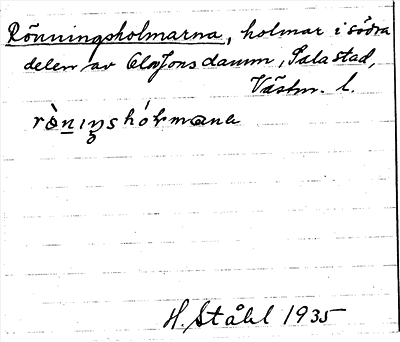 Rönningsholmarna, holmar i södra
delen av Olof Jons damm, Sala stad,
Västm. l.
rò̀nıŋshólmana
H. Ståhl 1935